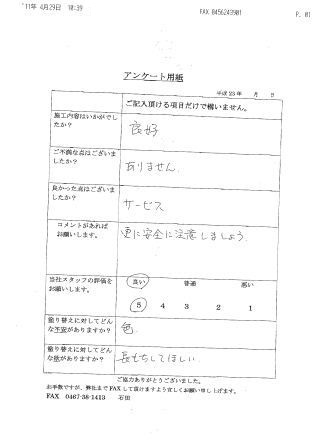 '11年 4月29日 10:39
FAX 0456243901
P. 01
アンケート用紙
平成23年　月　日
ご記入頂ける項目だけで構いません。
施工内容はいかがでしたか？
良好
ご不満な点はございましたか？
ありません
良かった点はございましたか？
サービス
コメントがあれば
お願いします。
更に安全に注意しましょう
当社スタッフの評価を
お願いします。
良い　普通　悪い
5　4　3　2　1
塗り替えに対してどんな不安がありますか？
色
塗り替えに対してどんな欲がありますか？
長もちしてほしい
ご協力ありがとうございました。
お手数ですが、弊社までFAXして頂けますよう宜しくお願い申し上げます。
FAX　0467-38-1413　石田